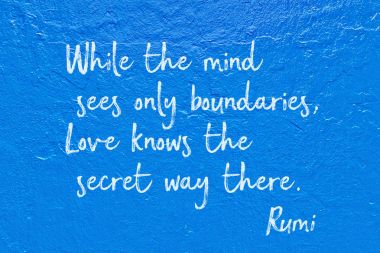 While the mind
sees only boundaries,
Love knows the
secret way there.
Rumi